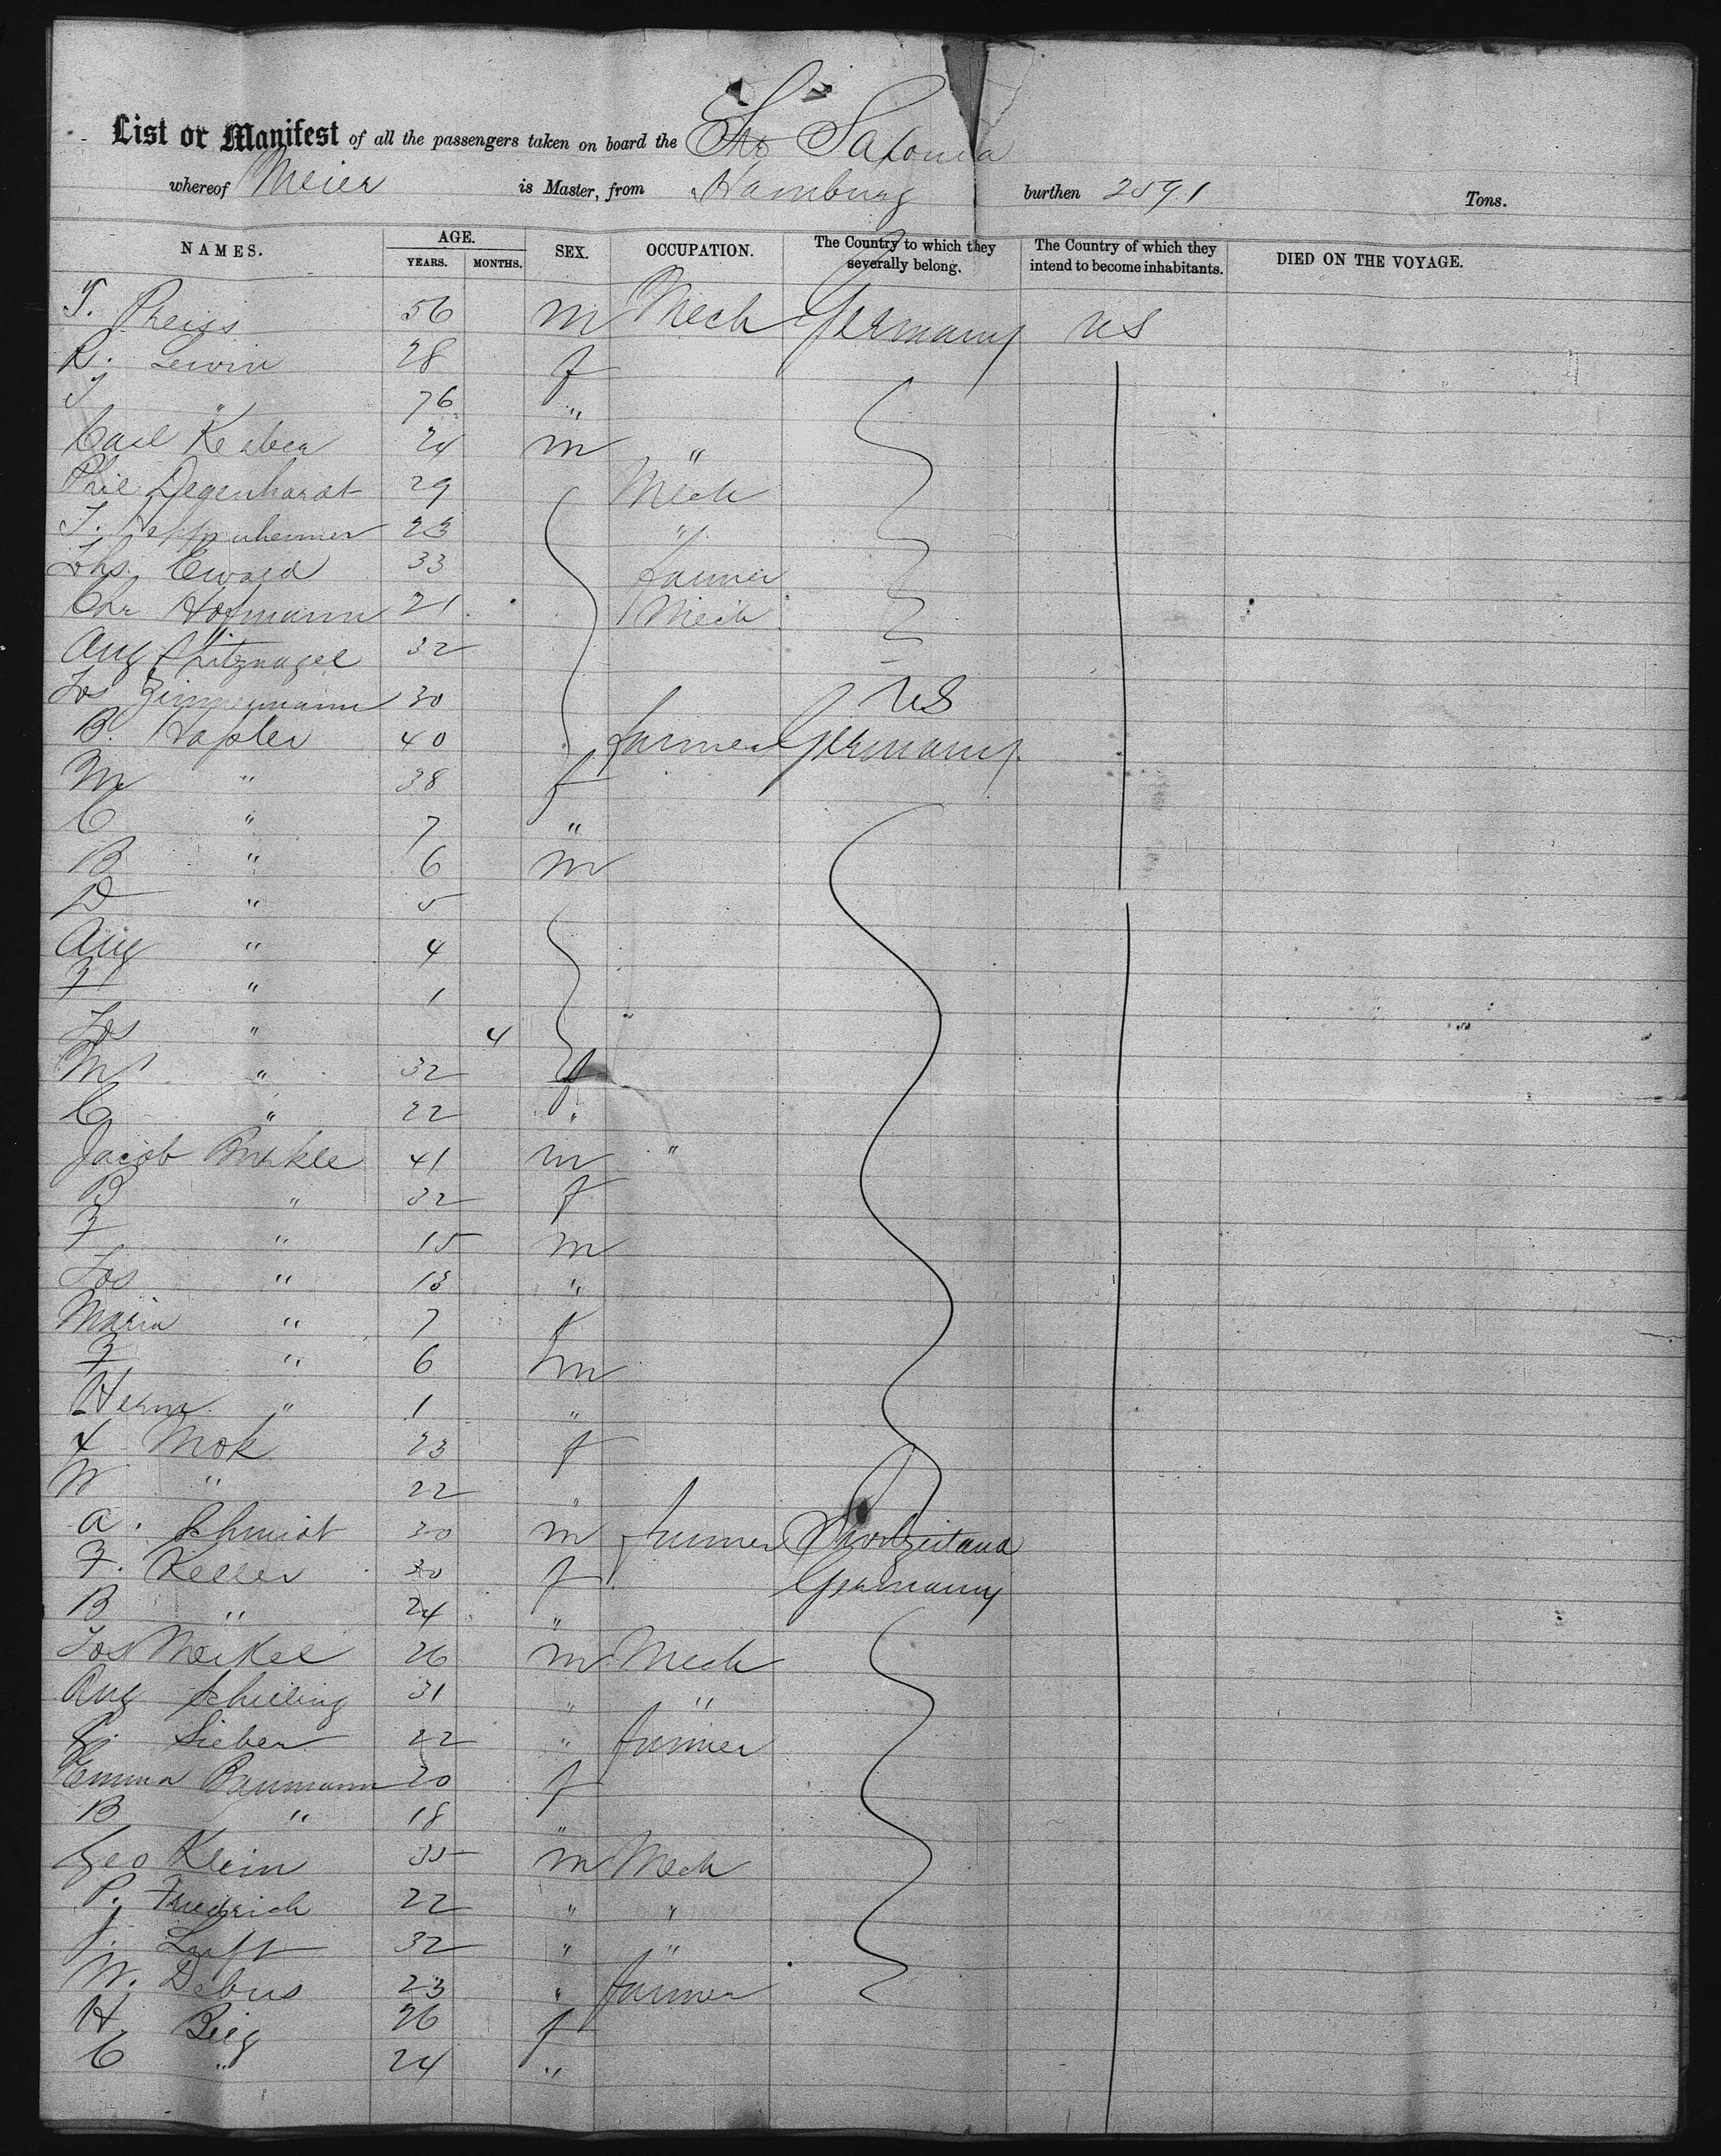 List or Manifest of all the passengers taken on board the Str Saxonia
whereof Meier is Master, from Hamburg burthen 2591 Tons.
NAMES. AGE. YEARS. MONTHS. SEX. OCCUPATION. The Country to which they severally belong. The Country of which they intend to become inhabitants. DIED ON THE VOYAGE.
T. Preiss 56 m Mech Germany US
R. Lewin 28 f
J " 76 "
Carl Kerber 24 m "
Phil Degenhardt 29 Mech
T. 23 "
Johs. Ewald 33 farmer
Chr Hofmann 21 Mech
Aug Spitznagel 32
Jos Zimmermann 30 US
B. Hasler 40 farmer Germany
M " 38 f
C " 7 "
B " 6 m
D " 5
Aug " 4
F " 1
Jos " 4
M " 32 f
C " 22 "
Jacob Burkle 41 m "
B " 32 f
F " 15 m
Jos " 13 "
Maria " 7 f
F " 6 m
Herm " 1 "
X Mok 23 f
W " 22 "
A. Schmidt 30 m farmer Switzerland
F. Keller 30 f Germany
B " 24 "
Jos Merkel 26 m Mech
Aug Schilling 31 " "
G. Sieber 22 " farmer
Emma Baumann 20 f
B " 18 "
Geo Klein 35 m Mech
P. Friedrich 22 " "
J. Luft 32 " "
W. Debus 23 " farmer
H Beig 26 f
C " 24 "